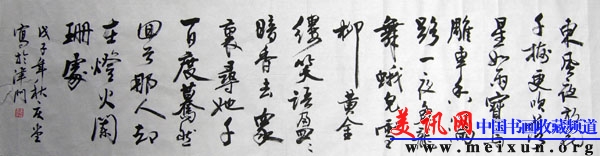 東風夜放花
千樹更吹落
星如雨寶馬
雕車香滿
路一夜魚龍
舞蛾兒雪
柳黃金
縷笑語盈盈
暗香去眾
裏尋她千
百度驀然
回首那人却
在燈火闌
珊處
戊子年秋友堂
寫於津門
美讯网 中国书画收藏频道
www.meixun.org